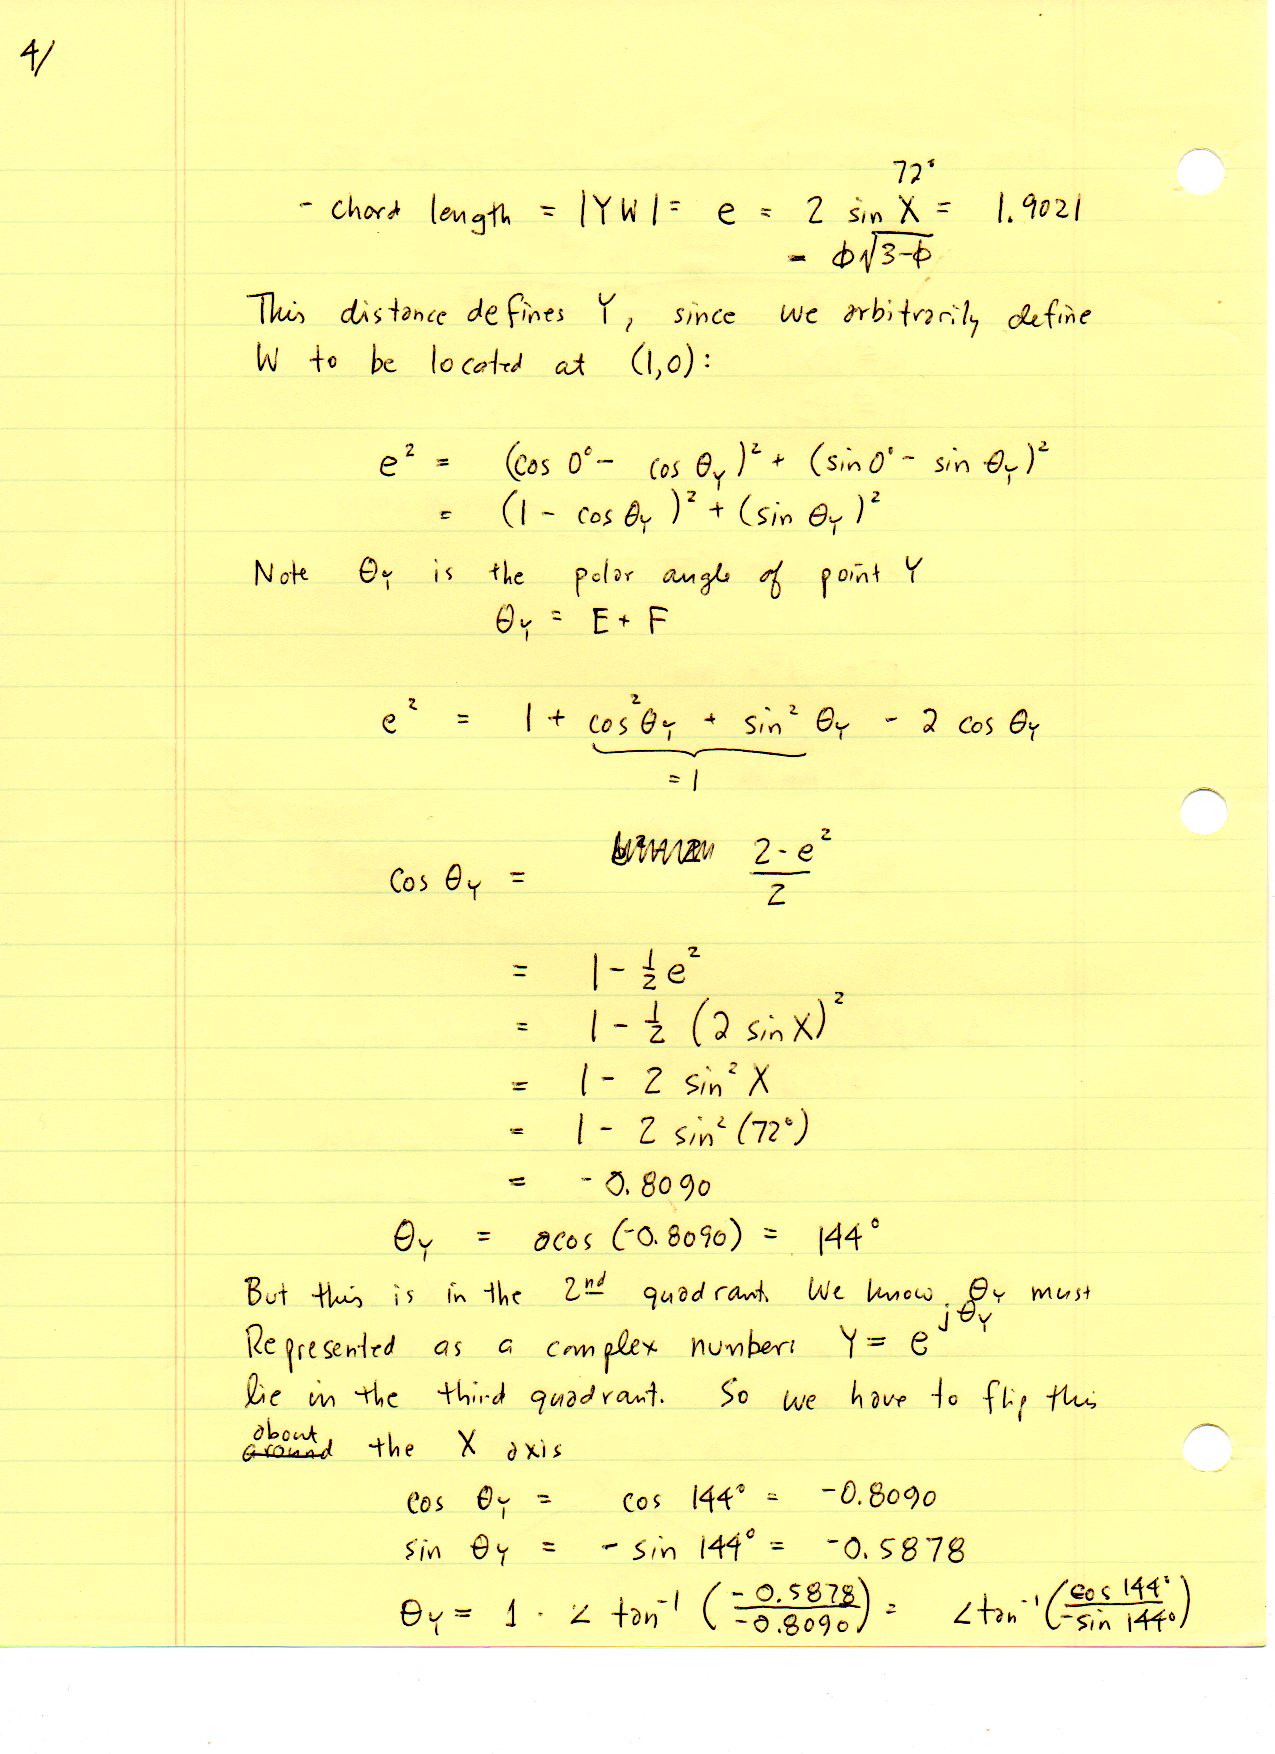 4/
72°
- chord length = |YW| = e = 2 sin X = 1.9021
= ϕ√3-ϕ
This distance defines Y, since we arbitrarily define
W to be located at (1,0):
e² = (cos 0° - cos θY)² + (sin 0° - sin θY)²
= (1 - cos θY)² + (sin θY)²
Note θY is the polar angle of point Y
θY = E + F
e² = 1 + cos²θY + sin² θY - 2 cos θY
= 1
cos θY = 2 - e² / 2
= 1 - ½ e²
= 1 - ½ (2 sin X)²
= 1 - 2 sin² X
= 1 - 2 sin² (72°)
= -0.8090
θY = acos (-0.8090) = 144°
But this is in the 2nd quadrant. We know θY must
Represented as a complex number: Y = e^jθY
lie in the third quadrant. So we have to flip this
about
around the X axis
cos θY = cos 144° = -0.8090
sin θY = - sin 144° = -0.5878
θY = 1 · ∠ tan⁻¹ (-0.5878 / -0.8090) = ∠ tan⁻¹ (cos 144° / -sin 144°)